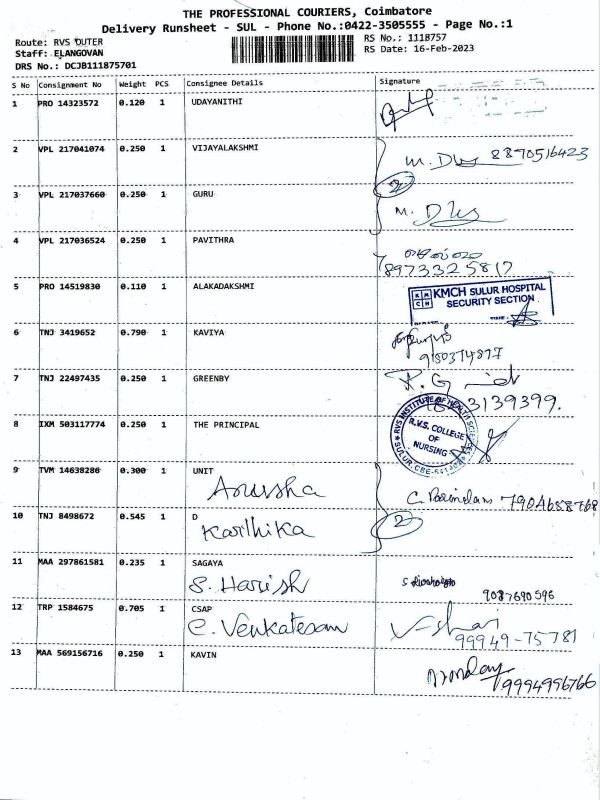 THE PROFESSIONAL COURIERS, Coimbatore
Delivery Runsheet - SUL - Phone No.:0422-3505555 - Page No.:1
Route: RVS OUTER
RS No.: 1118757
Staff: ELANGOVAN
RS Date: 16-Feb-2023
DRS No.: DCJB111875701
S No Consignment No Weight PCS Consignee Details Signature
1 PRO 14323572 0.120 1 UDAYANITHI
2 VPL 217041074 0.250 1 VIJAYALAKSHMI 8870516423
3 VPL 217037660 0.250 1 GURU
2
4 VPL 217036524 0.250 1 PAVITHRA
8973325817
5 PRO 14519830 0.110 1 ALAKADAKSHMI
KMCH SULUR HOSPITAL
SECURITY SECTION
6 TNJ 3419652 0.790 1 KAVIYA
7 TNJ 22497435 0.250 1 GREENBY
3139399.
8 IXM 503117774 0.250 1 THE PRINCIPAL
RVS INSTITUTE OF HEALTH SCIENCES
R.V.S. COLLEGE
OF
NURSING
9 TVM 14638286 0.300 1 UNIT
Anussha
7904658768
10 TNJ 8498672 0.545 1 D
Karthika
2
11 MAA 297861581 0.235 1 SAGAYA
S. Harish
9087690596
12 TRP 1584675 0.705 1 CSAP
C. Venkatesan
99949-75781
13 MAA 569156716 0.250 1 KAVIN
9994996766